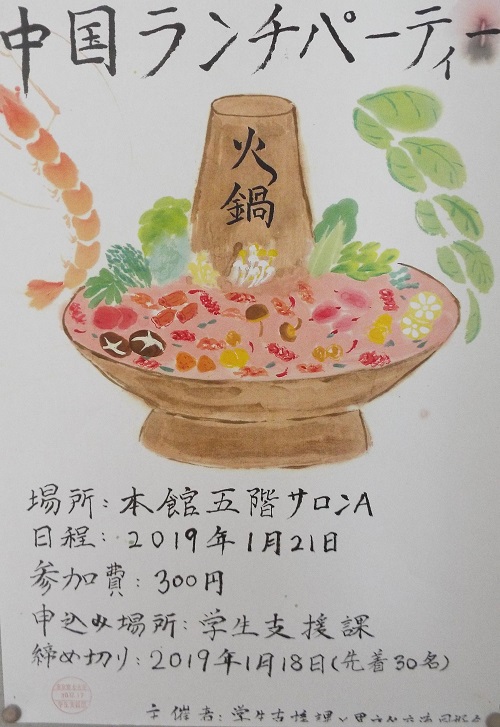 中国ランチパーティー
火鍋
場所:本館五階サロンA
日程:2019年1月21日
参加費:300円
申込み場所:学生支援課
締め切り:2019年1月18日(先着30名)
主催者:学生支援課